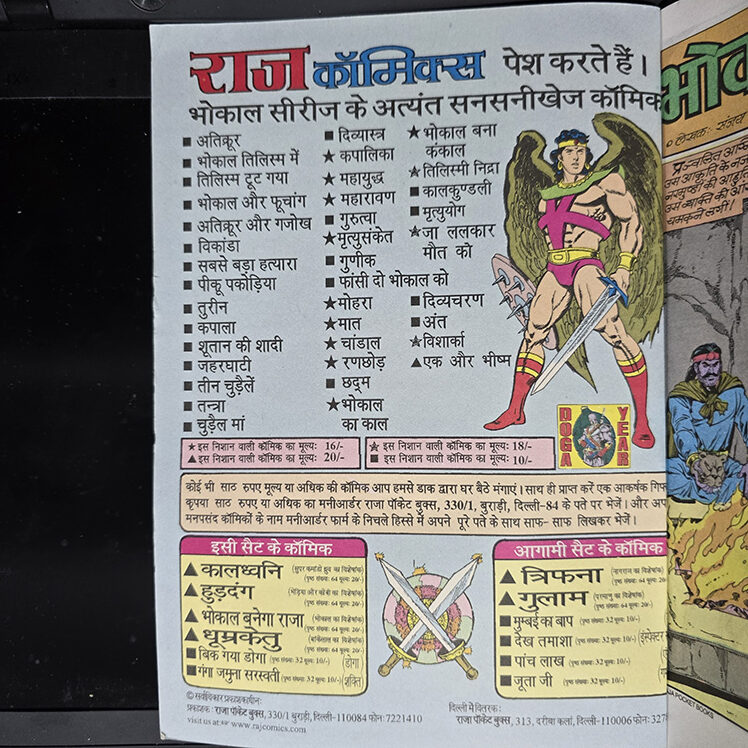 राज कॉमिक्स पेश करते हैं।
भोकाल सीरीज के अत्यंत सनसनीखेज कॉमिक
■ अतिक्रूर
■ भोकाल तिलिस्म में
■ तिलिस्म टूट गया
■ भोकाल और फूचांग
■ अतिक्रूर और गजोख
■ विकांडा
■ सबसे बड़ा हत्यारा
■ पीकू पकोड़िया
■ तुरीन
■ कपाला
■ शूतान की शादी
■ जहरघाटी
■ तीन चुड़ैलें
■ तन्त्रा
■ चुड़ैल मां
■ दिव्यास्त्र
★ कपालिका
★ महायुद्ध
★ महारावण
■ गुरुत्वा
★ मृत्युसंकेत
■ गुणीक
■ फांसी दो भोकाल को
★ मोहरा
★ मात
★ चांडाल
★ रणछोड़
■ छद्म
★ भोकाल
का काल
★ भोकाल बना
कंकाल
★ तिलिस्मी निद्रा
■ कालकुण्डली
■ मृत्युयोग
★ जा ललकार
मौत को
■ दिव्यचरण
■ अंत
★ विशार्का
▲ एक और भीष्म
DOGA YEAR
★ इस निशान वाली कॉमिक का मूल्य: 16/-
▲ इस निशान वाली कॉमिक का मूल्य: 20/-
★ इस निशान वाली कॉमिक का मूल्य: 18/-
■ इस निशान वाली कॉमिक का मूल्य: 10/-
कोई भी साठ रुपए मूल्य या अधिक की कॉमिक आप हमसे डाक द्वारा घर बैठे मंगाएं। साथ ही प्राप्त करें एक आकर्षक गिफ
कृपया साठ रुपए या अधिक का मनीआर्डर राजा पॉकेट बुक्स, 330/1, बुराड़ी, दिल्ली-84 के पते पर भेजें। और अप
मनपसंद कॉमिकों के नाम मनीआर्डर फार्म के निचले हिस्से में अपने पूरे पते के साथ साफ- साफ लिखकर भेजें।
इसी सैट के कॉमिक
▲ कालध्वनि (सुपर कमांडो ध्रुव का विशेषांक)
(पृष्ठ संख्या: 64 मूल्य: 20/-)
▲ हुड़दंग (भेड़िया और कोबी का विशेषांक)
(पृष्ठ संख्या: 64 मूल्य: 20/-)
▲ भोकाल बनेगा राजा (भोकाल का विशेषांक)
(पृष्ठ संख्या: 64 मूल्य: 20/-)
▲ धूम्रकेतु (बांकेलाल का विशेषांक)
(पृष्ठ संख्या: 64 मूल्य: 20/-)
■ बिक गया डोगा (पृष्ठ संख्या: 32 मूल्य: 10/-) (डोगा
■ गंगा जमुना सरस्वती (पृष्ठ संख्या: 32 मूल्य: 10/-) शक्ति)
आगामी सैट के कॉमिक
▲ त्रिफना (नागराज का विशेषांक)
(पृष्ठ संख्या: 64 मूल्य: 20/-)
▲ गुलाम (परमाणु का विशेषांक)
(पृष्ठ संख्या: 64 मूल्य: 20/-)
■ मुम्बई का बाप (पृष्ठ संख्या: 32 मूल्य: 10/-)
■ देख तमाशा (पृष्ठ संख्या: 32 मूल्य: 10/-) (इंस्पेक्टर
■ पांच लाख (पृष्ठ संख्या: 32 मूल्य: 10/-)
■ जूता जी (पृष्ठ संख्या: 32 मूल्य: 10/-)
© सर्वाधिकार प्रकाशकाधीन:
प्रकाशक: राजा पॉकेट बुक्स, 330/1 बुराड़ी, दिल्ली-110084 फोन: 7221410
visit us at: www.rajcomics.com
दिल्ली में वितरक:
राजा पॉकेट बुक्स, 313, दरीबा कलां, दिल्ली-110006 फोन: 327
भोक
लेखक: संजय
उस आकृति के
उस व्यक्ति की
चमकने लगीं।
POCKET BOOKS